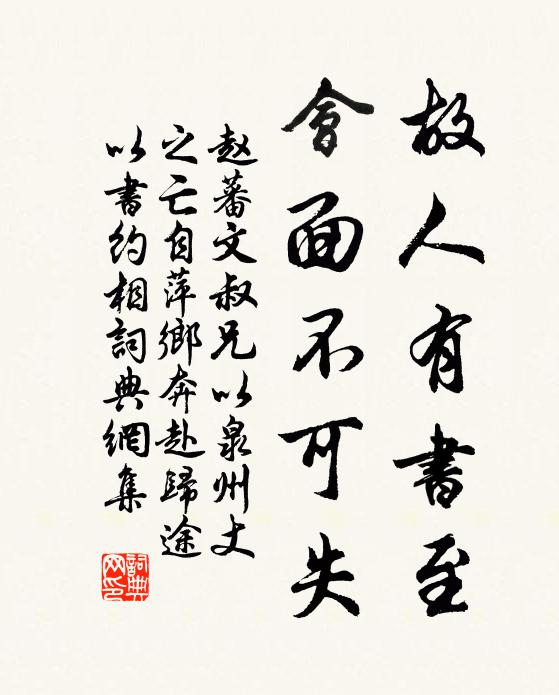 故人有書至
會面不可失
赵蕃文叔兄以泉州丈
之亡自萍鄉奔赴歸途
以書約相詞典網集
詞典网印